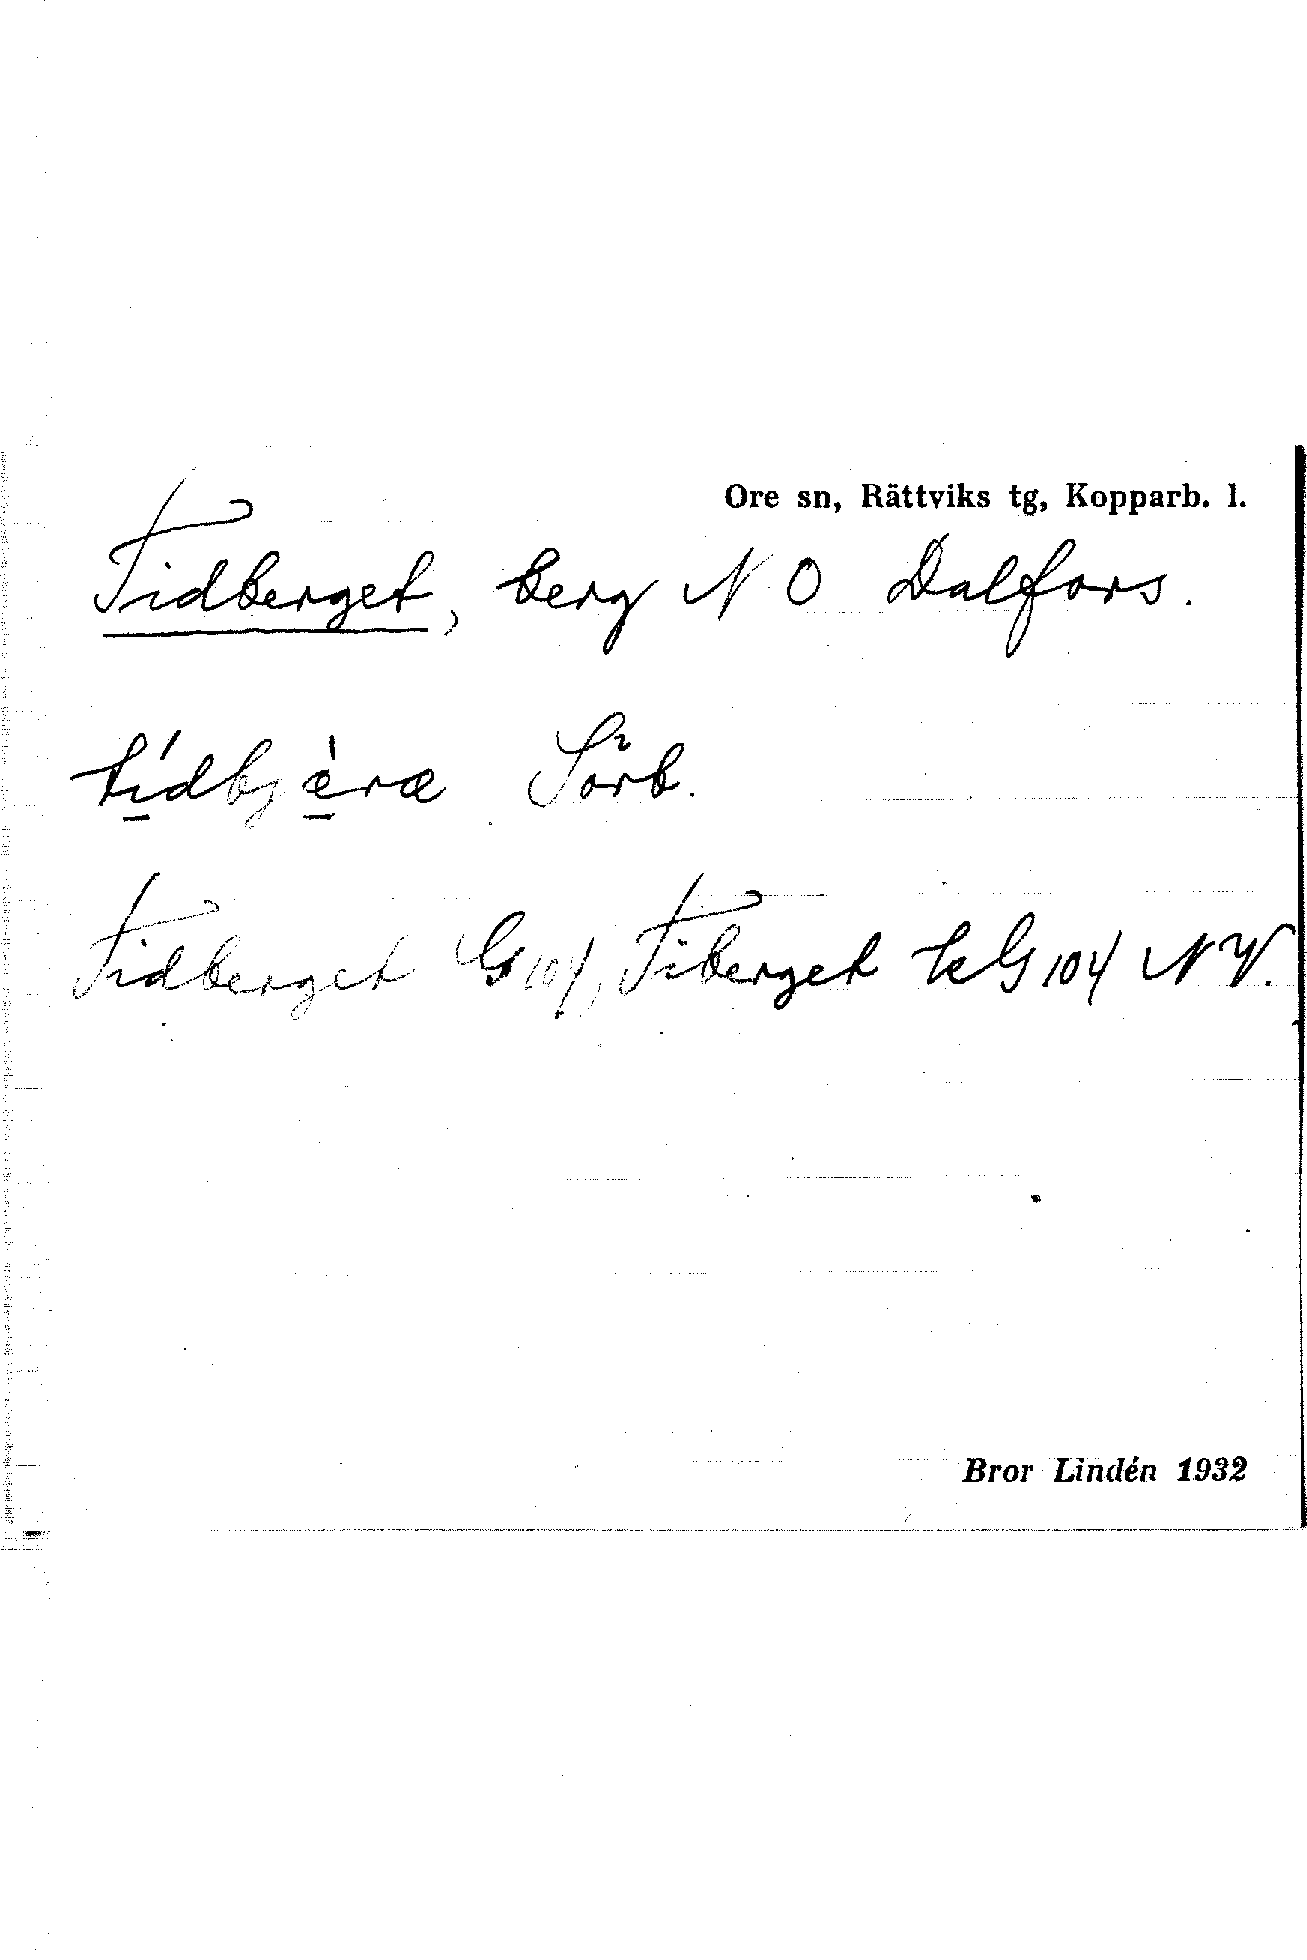 Ore sn, Rättviks tg, Kopparb. l.
Tidberget, berg N O Dalfors.
tídbjèræ Sörb.
Tidberget G 104, Tiberget kG 104 NV.
Bror Lindén 1932